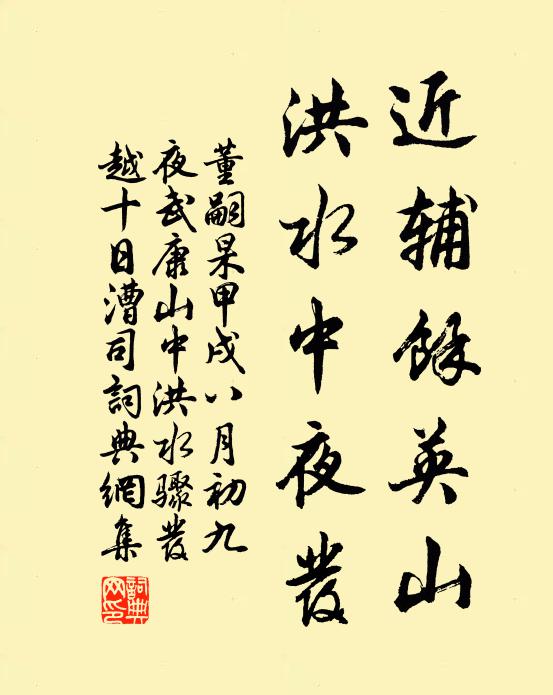 近辅馀英山
洪水中夜發
董嗣杲甲戌八月初九
夜武康山中洪水骤發
越十日漕司詞典網集
詞典网印